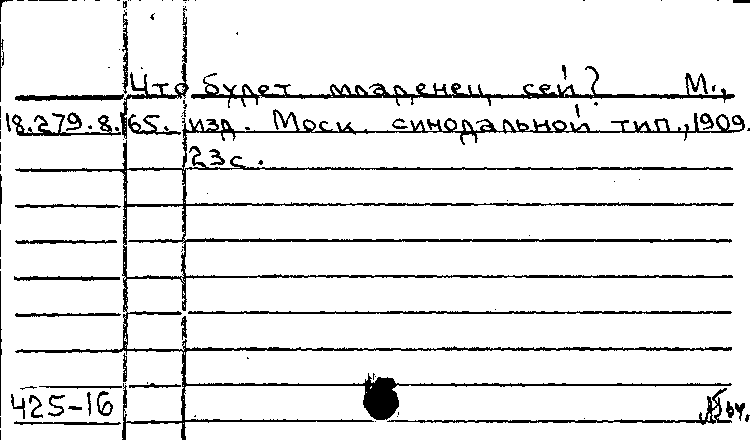 Что будет младенец сей? М.,
18.279.8.165. изд. Моск. синодальной тип., 1909.
23с.
425-16